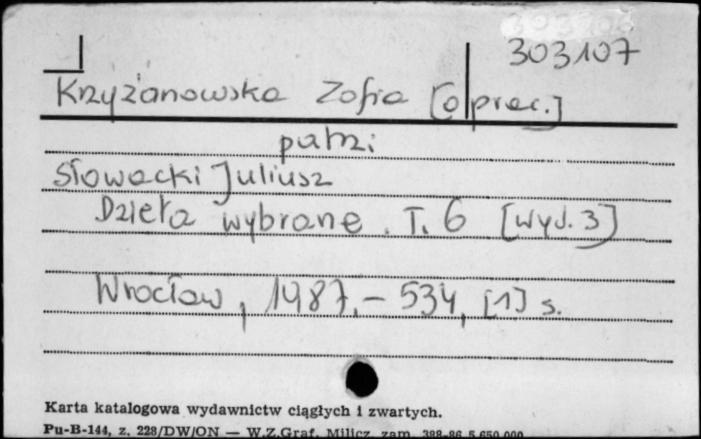 303107
Krzyżanowska Zofia [oprac.]
patrz:
Słowacki Juliusz
Dzieła wybrane. T. 6 [wyd. 3]
Wrocław, 1987. – 534, [1] s.
Karta katalogowa wydawnictw ciągłych i zwartych.
Pu-B-144, z. 228/DW/ON — W.Z.Graf. Milicz, zam. 388-86 5.650.000